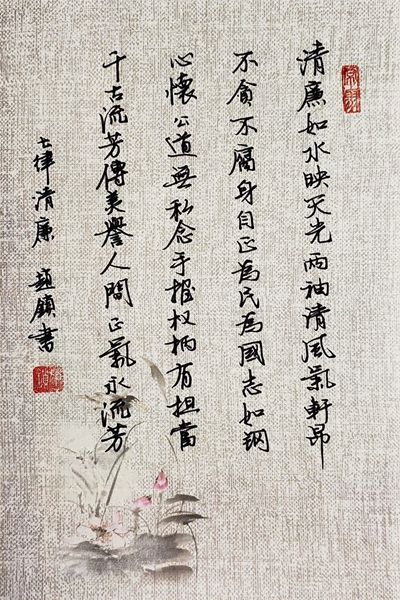 清廉如水映天光两袖清風氣軒昂
不貪不腐身自正為民為國志如鋼
心懷公道無私念手握权柄有担當
千古流芳傳美譽人間正氣永流芳
七律清廉 趙鎮書